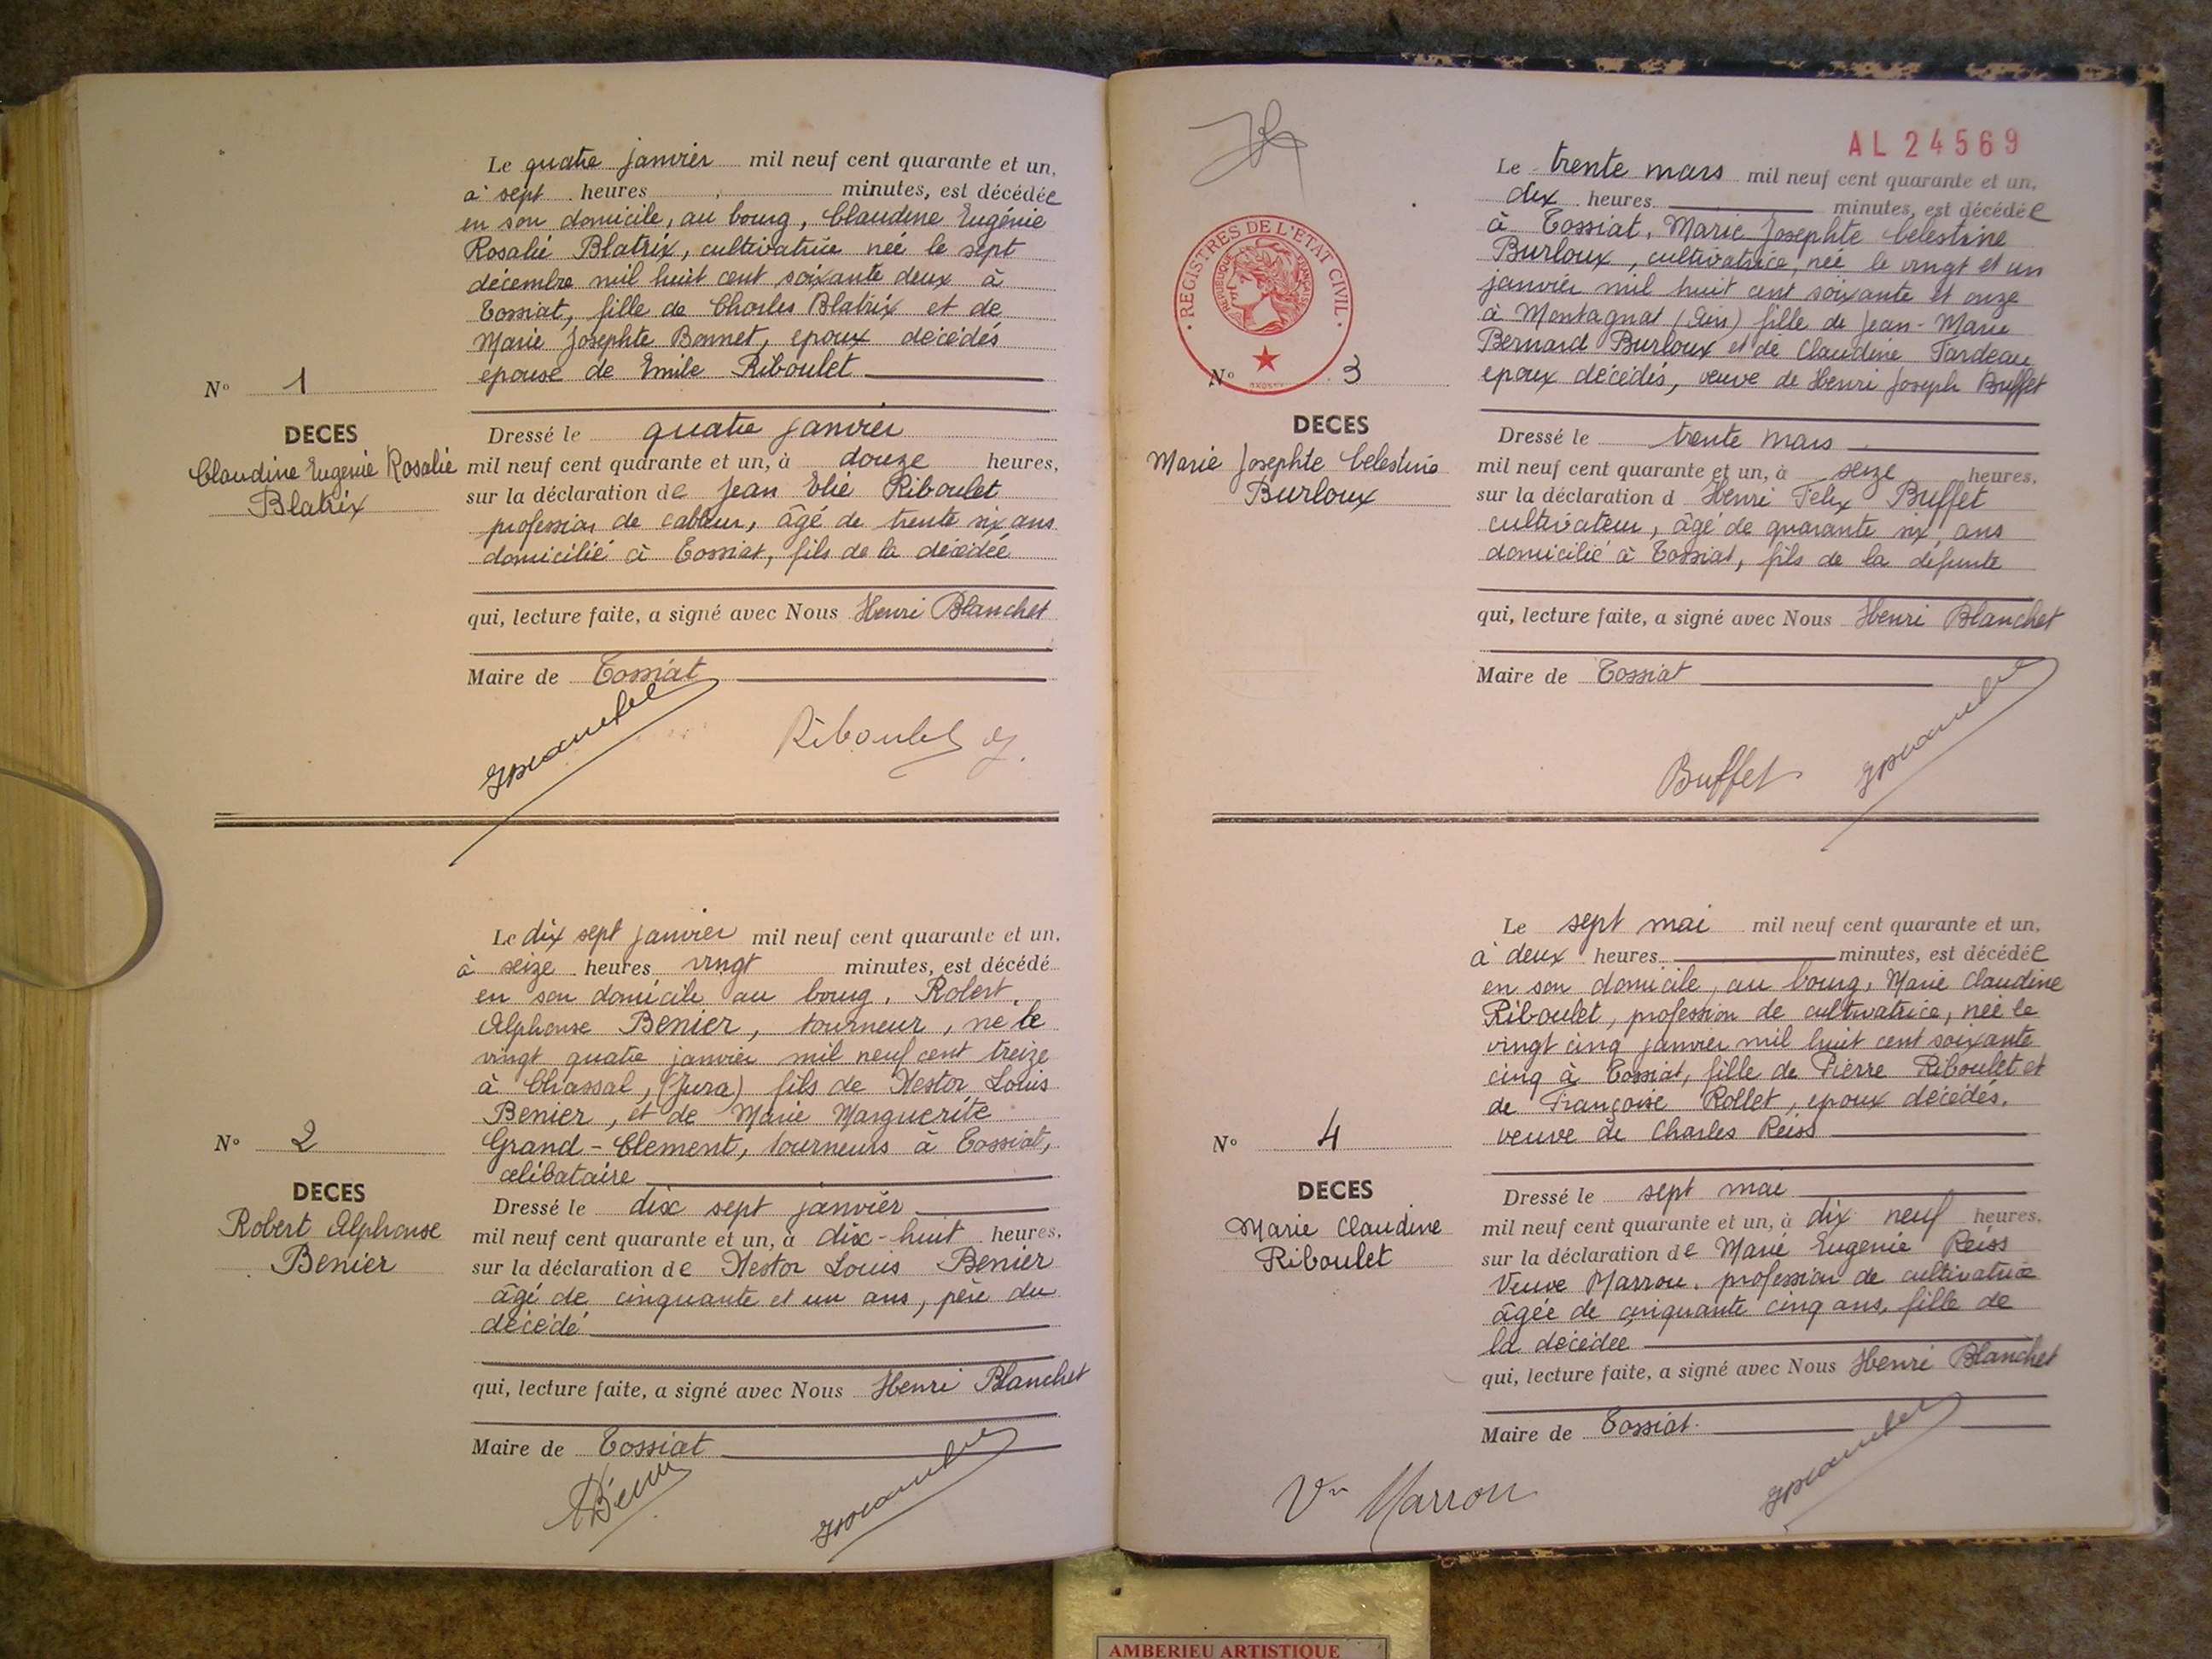 Le quatre janvier mil neuf cent quarante et un,
à sept heures minutes, est décédée
en son domicile, au bourg, Claudine Eugénie
Rosalie Blatrix, cultivatrice née le sept
décembre mil huit cent soixante deux à
Tossiat, fille de Charles Blatrix et de
Marie Josephte Bonnet, epoux décédés
epouse de Emile Riboulet
N° 1
DECES
Claudine Eugenie Rosalie
Blatrix
Dressé le quatre janvier
mil neuf cent quarante et un, à douze heures,
sur la déclaration de Jean Elie Riboulet
profession de cableur, âgé de trente six ans
domicilié à Tossiat, fils de la décédée
qui, lecture faite, a signé avec Nous Henri Blanchet
Maire de Tossiat
Riboulet J.
Le dix sept janvier mil neuf cent quarante et un,
à seize heures vingt minutes, est décédé
en son domicile au bourg, Robert
Alphonse Benier, tourneur, né le
vingt quatre janvier mil neuf cent treize
à Chassal, (Jura) fils de Nestor Louis
Benier, et de Marie Marguerite
Grand-Clement, tourneurs à Tossiat,
celibataire
N° 2
DECES
Robert Alphonse
Benier
Dressé le dix sept janvier
mil neuf cent quarante et un, à dix-huit heures,
sur la déclaration de Nestor Louis Benier
âgé de cinquante et un ans, père du
décédé
qui, lecture faite, a signé avec Nous Henri Blanchet
Maire de Tossiat
AL 24569
Le trente mars mil neuf cent quarante et un,
dix heures minutes, est décédée
à Tossiat, Marie Josephte Celestine
Burloux, cultivatrice, née le vingt et un
janvier mil huit cent soixante et onze
à Montagnat (Ain) fille de Jean-Marie
Bernard Burloux et de Claudine Tardeau
epoux décédés, veuve de Henri Joseph Buffet
REGISTRES DE L'ETAT CIVIL
REPUBLIQUE FRANÇAISE
N° 3
DECES
Marie Josephte Celestine
Burloux
Dressé le trente mars
mil neuf cent quarante et un, à seize heures,
sur la déclaration d Henri Felix Buffet
cultivateur, âgé de quarante six ans
domicilié à Tossiat, fils de la défunte
qui, lecture faite, a signé avec Nous Henri Blanchet
Maire de Tossiat
Buffet
Le sept mai mil neuf cent quarante et un,
à deux heures minutes, est décédée
en son domicile, au bourg, Marie Claudine
Riboulet, profession de cultivatrice, née le
vingt cinq janvier mil huit cent soixante
cinq à Tossiat, fille de Pierre Riboulet et
de Françoise Rollet, epoux décédés,
veuve de Charles Reiss
N° 4
DECES
Marie Claudine
Riboulet
Dressé le sept mai
mil neuf cent quarante et un, à dix neuf heures,
sur la déclaration de Marie Eugenie Reiss
Veuve Marron, profession de cultivatrice
âgée de cinquante cinq ans, fille de
la décédée
qui, lecture faite, a signé avec Nous Henri Blanchet
Maire de Tossiat
Vve Marron
AMBERIEU ARTISTIQUE